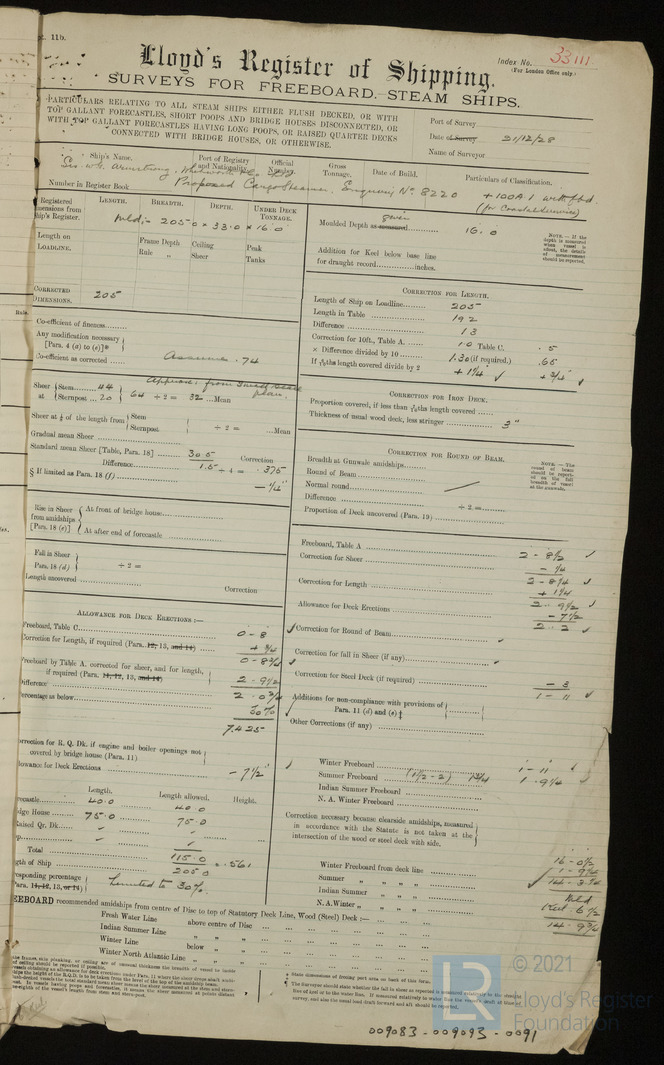 pt. 11b.
Lloyd's Register of Shipping.
SURVEYS FOR FREEBOARD.—STEAM SHIPS.
Index No. 33111
(For London Office only.)
PARTICULARS RELATING TO ALL STEAM SHIPS EITHER FLUSH DECKED, OR WITH
TOP GALLANT FORECASTLES, SHORT POOPS AND BRIDGE HOUSES DISCONNECTED, OR
WITH TOP GALLANT FORECASTLES HAVING LONG POOPS, OR RAISED QUARTER DECKS
CONNECTED WITH BRIDGE HOUSES, OR OTHERWISE.
Port of Survey
Date of Survey 21/12/28
Name of Surveyor
Ship's Name. Port of Registry and Nationality. Official Number. Gross Tonnage. Date of Build. Particulars of Classification.
Sir W.G. Armstrong, Whitworth & Co Ltd
Proposed Cargo Steamer. Enquiry No. 8220 +100A1 with fbd
(for Coastal service)
Number in Register Book
Registered dimensions from Ship's Register. LENGTH. BREADTH. DEPTH. UNDER DECK TONNAGE.
Mld;- 205.0 x 33.0 x 16.0
Length on LOADLINE. Frame Depth Ceiling Peak
Rule „ Sheer Tanks
CORRECTED DIMENSIONS. 205
Co-efficient of fineness
Any modification necessary
[Para. 4 (a) to (e)]*
Co-efficient as corrected Assume .74
Approx: from small scale plan.
Sheer at { Stem 44
Sternpost 20 } 64 ÷ 2 = 32 Mean
Sheer at ⅛ of the length from { Stem
Sternpost } ÷ 2 = Mean
Gradual mean Sheer
Standard mean Sheer [Table, Para. 18] 30.5 Correction
Difference 1.5 ÷ 4 = .375
§ If limited as Para. 18 (f) - ¼"
Rise in Sheer from amidships [Para. 18 (e)] { At front of bridge house
At after end of forecastle
Fall in Sheer
Para. 18 (d) ÷ 2 =
Length uncovered Correction
ALLOWANCE FOR DECK ERECTIONS :—
Freeboard, Table C 0 - 8
Correction for Length, if required (Para. 12, 13, and 14) + ¾
0 - 8¾
Freeboard by Table A. corrected for sheer, and for length,
if required (Para. 11, 12, 13, and 14) 2 - 9½
Difference 2 - 0¾
Percentage as below 30%
7.425
Correction for R. Q. Dk. if engine and boiler openings not
covered by bridge house (Para. 11)
Allowance for Deck Erections - 7½"
Length. Length allowed. Height.
Forecastle 40.0 40.0
Bridge House 75.0 75.0
Raised Qr. Dk.
Total 115.0
Length of Ship 205.0 = .561
Corresponding percentage
(Para. 11, 12, 13, or 14) Limited to 30%.
Moulded Depth as measured given 16.0
NOTE.—If the depth is measured when vessel is afloat, the details of measurement should be reported.
Addition for Keel below base line
for draught record inches.
CORRECTION FOR LENGTH.
Length of Ship on Loadline 205
Length in Table 192
Difference 13
Correction for 10ft., Table A. 1.0 Table C. .5
× Difference divided by 10 1.30 (if required.) .65
If 6/10ths length covered divide by 2 + 1¼ + ¾"
CORRECTION FOR IRON DECK.
Proportion covered, if less than 7/10ths length covered
Thickness of usual wood deck, less stringer 3"
CORRECTION FOR ROUND OF BEAM.
Breadth at Gunwale amidships
Round of Beam
Normal round
Difference ÷ 2 =
Proportion of Deck uncovered (Para. 19)
NOTE.—The round of beam should be reported on the full breadth of vessel at the gunwale.
Freeboard, Table A 2 - 8½
Correction for Sheer - ¼
2 - 8¼
Correction for Length + 1¼
2 - 9½
Allowance for Deck Erections - 7½
2 - 2
Correction for Round of Beam
Correction for fall in Sheer (if any)
Correction for Steel Deck (if required) - 3
1 - 11
Additions for non-compliance with provisions of
Para. 11 (d) and (e) ‡
Other Corrections (if any)
Winter Freeboard 1 - 11
Summer Freeboard (1½ - 2) 1¾ 1 - 9¼
Indian Summer Freeboard
N. A. Winter Freeboard
Correction necessary because clearside amidships, measured
in accordance with the Statute is not taken at the
intersection of the wood or steel deck with side.
16 - 0½
Winter Freeboard from deck line 1 - 9¼
Summer „ „ „ „ 14 - 3¼ Mld
Indian Summer „ „ „ Keel 6½
N.A. Winter „ „ „ 14 - 9¾
FREEBOARD recommended amidships from centre of Disc to top of Statutory Deck Line, Wood (Steel) Deck :—
Fresh Water Line above centre of Disc
Indian Summer Line „ „
Winter Line below „
Winter North Atlantic Line „ „
LR
© 2021
Lloyd's Register
Foundation
009083-009093-0091